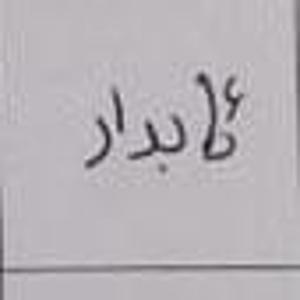 ئابدار